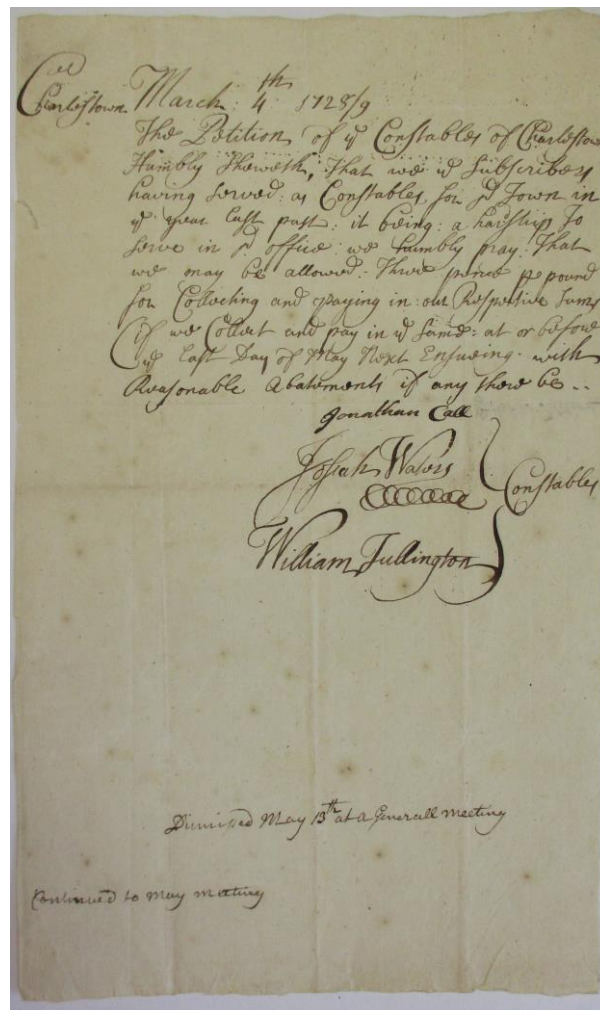 Charlestown March 4th 1728/9
The Petition of ye Constables of Charlestown
Humbly Sheweth, That we ye Subscribers
having served: as Constables for sd Town in
ye year last past: it being: a harship To
serve in sd office: we humbly pray: That
we may be allowed: Three pence pr pound
for Collecting and paying in: our Respetive Sums
if we Collect and pay in ye same: at or before
ye last Day of May Next Ensueing. with
Reasonable Abatements if any there be..
Jonathan Call
Josiah Waters
Constables
William Tullington
Dismissed May 13th at a Generall meeting
Continued to May meeting